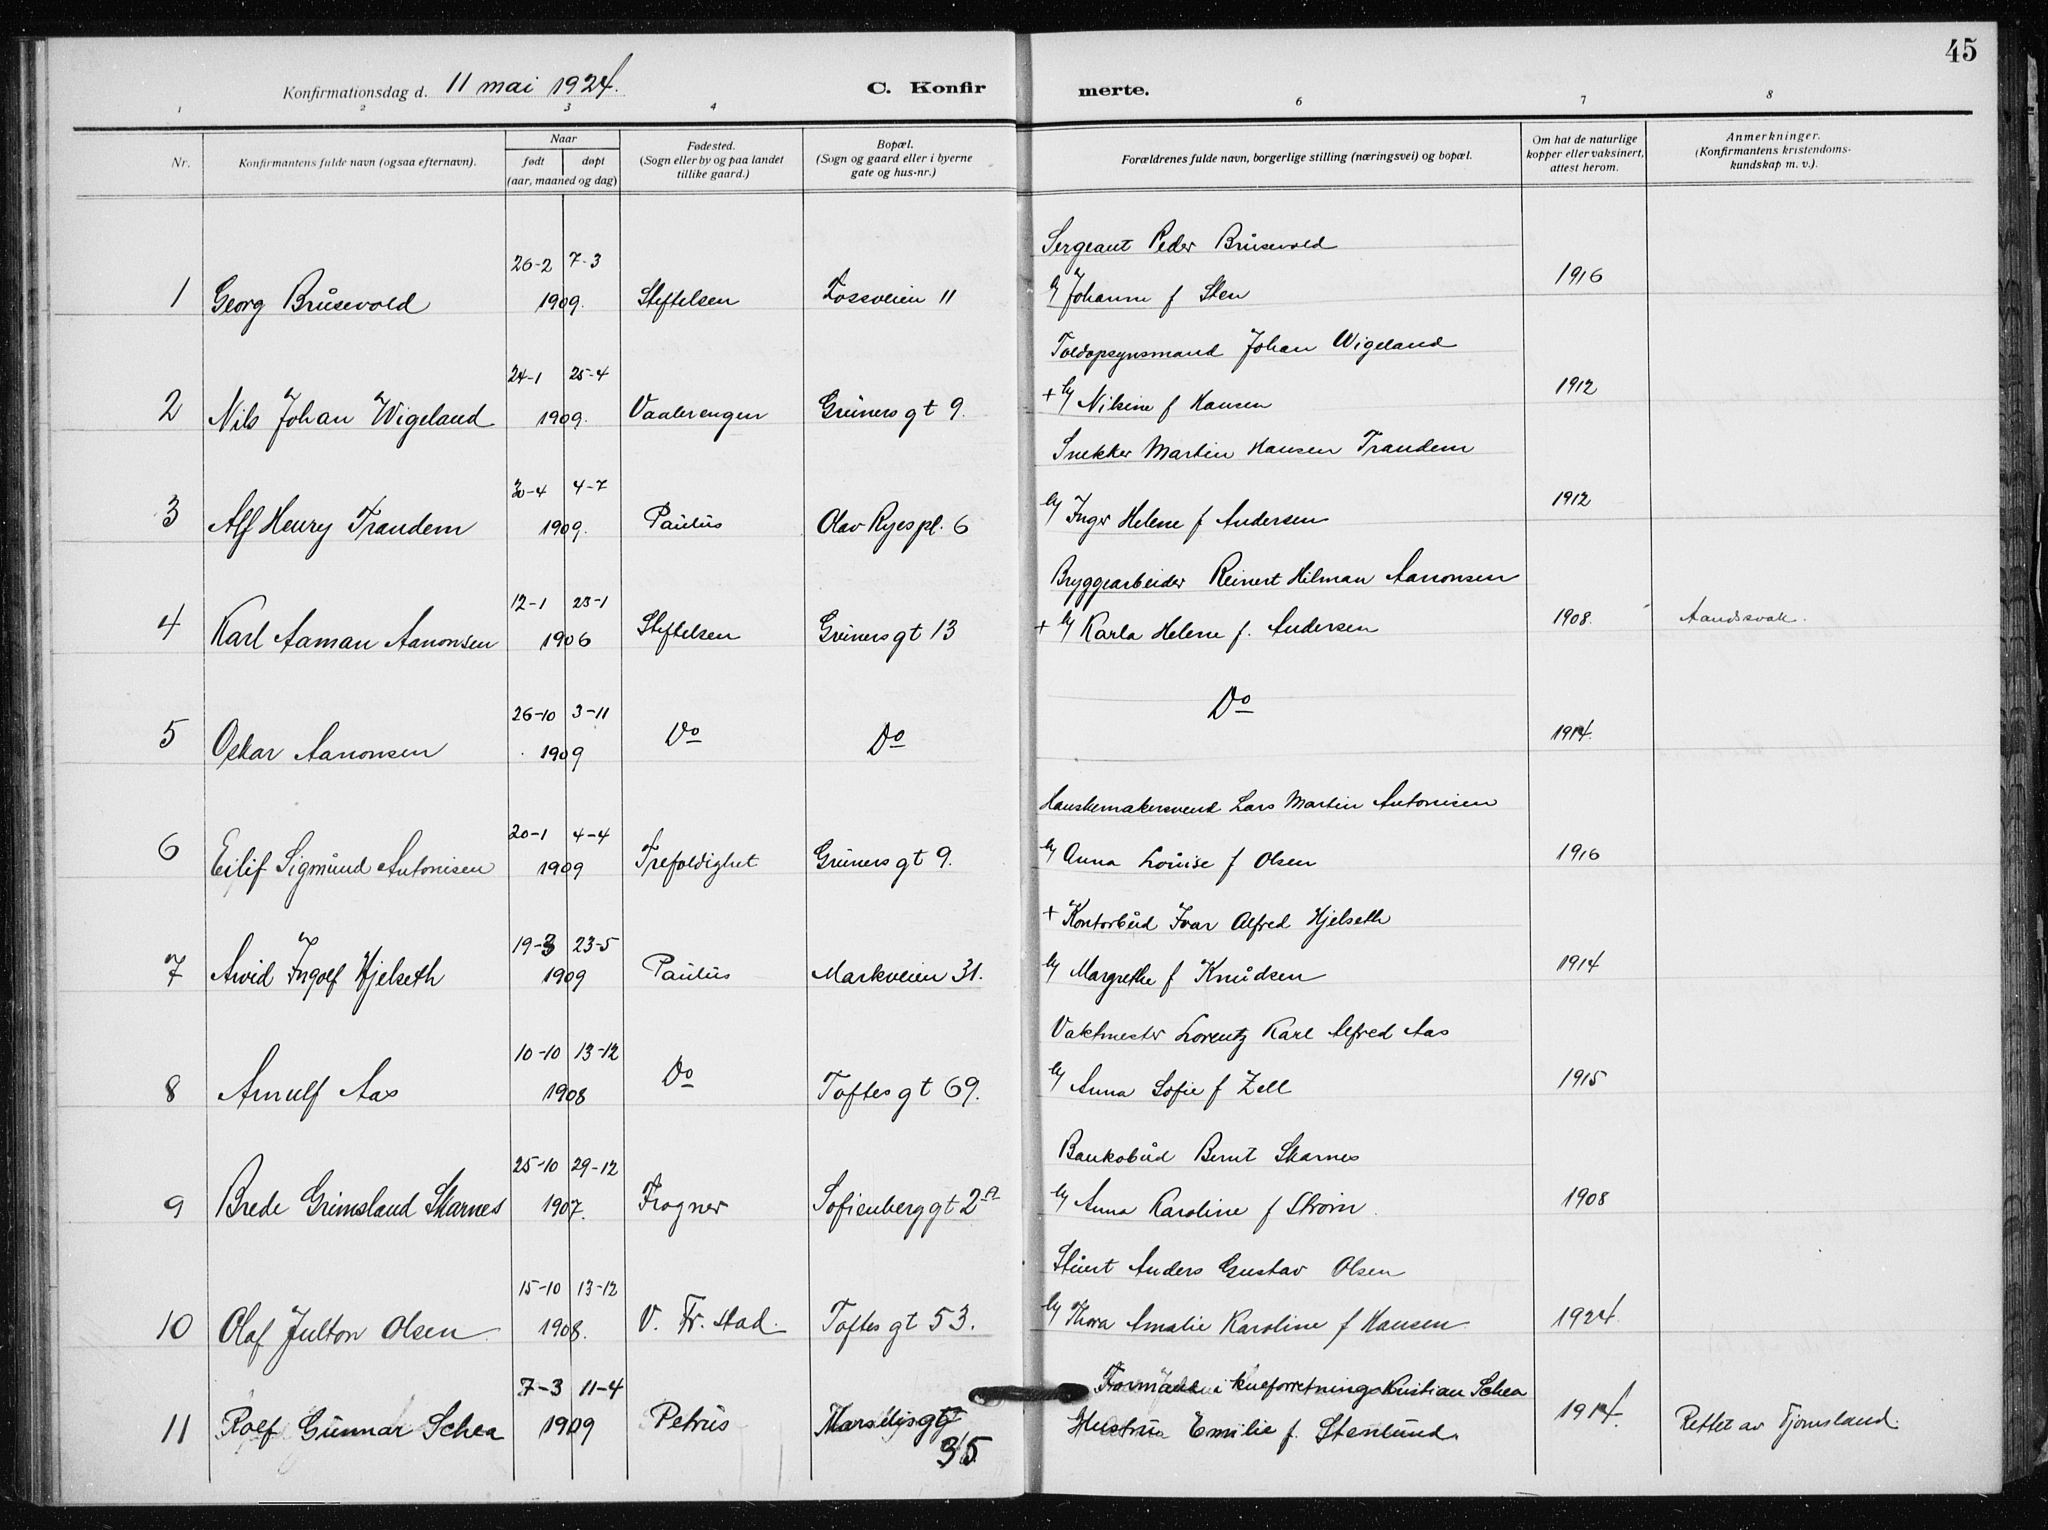 45
Konfirmationsdag d. 11 mai 1924.
C. Konfirmerte.
1 2 3 4 6 7 8
Nr.
Konfirmantens fulde navn (ogsaa efternavn).
Naar
født døpt
(aar, maaned og dag)
Fødested.
(Sogn eller by og paa landet
tillike gaard.)
Bopæl.
(Sogn og gaard eller i byerne
gate og hus-nr.)
Forældrenes fulde navn, borgerlige stilling (næringsvei) og bopæl.
Om hat de naturlige
kopper eller vaksinert,
attest herom.
Anmerkninger.
(Konfirmantens kristendoms-
kundskap m. v.).
Sergeant Peder Brusevold
26-2 7-3
1 Georg Brusevold 1909. Stiftelsen Fossveien 11 Johanne f Sten 1916
Toldopsynsmand Johan Wigeland
24-1 25-4
2 Nils Johan Wigeland 1909. Vaalerengen Grüners gt 9. + Nilsine f Hansen 1912
Snekker Martin Hansen Trandem
30-4 4-7
3 Alf Henry Trandem 1909. Paulus Olav Ryes pl. 6 Inger Helene f Andersen 1912
Bryggearbeider Reinert Hilman Aanonsen
12-1 23-1
4 Karl Aaman Aanonsen 1906 Stiftelsen Grüners gt 13 + Karla Helene f. Andersen 1908 Aandssvak.
26-10 3-11
5 Oskar Aanonsen 1909 Do Do Do 1914.
Hanskemakersvend Lars Martin Antonisen
20-1 4-4
6 Eilif Sigmund Antonisen 1909 Trefoldighet Grüners gt 9. Anna Louise f Olsen 1916
+ Kontorbud Ivar Alfred Hjelseth
19-3 23-5
7 Arvid Ingolf Hjelseth 1909 Paulus Markveien 31. Margrethe f Knudsen 1914
Vaktmester Lorentz Karl Alfred Aas
10-10 13-12
8 Arnulf Aas 1908 Do Toftes gt 69. Anna Sofie f Zell 1915
Bankobud Bernt Skarnes
25-10 29-12
9 Brede Grimsland Skarnes 1907. Frogner Sofienberggt 2a Anna Karoline f Strøm. 1908
Stuert Anders Gustav Olsen
15-10 13-12
10 Olaf Julton Olsen 1908. V. Fr. stad. Toftes gt 53. Thora Amalie Karoline f Hansen 1924.
Formand i kulforretning Kristian Schea
7-3 11-4
11 Rolf Gunnar Schea 1909 Petrus Marselisgt 35 Hustru Emilie f. Stenlund. 1914. Rettet av Tjomsland.